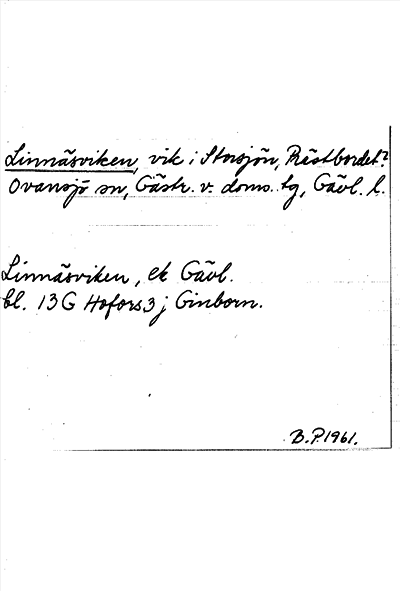 Linnäsviken, vik i Storsjön, Prästbordet?
Ovansjö sn, Gästr. v. doms. tg, Gävl. l.
Linnäsviken, ek Gävl.
bl. 13G Hofors 3 j Ginborn.
B.P. 1961.